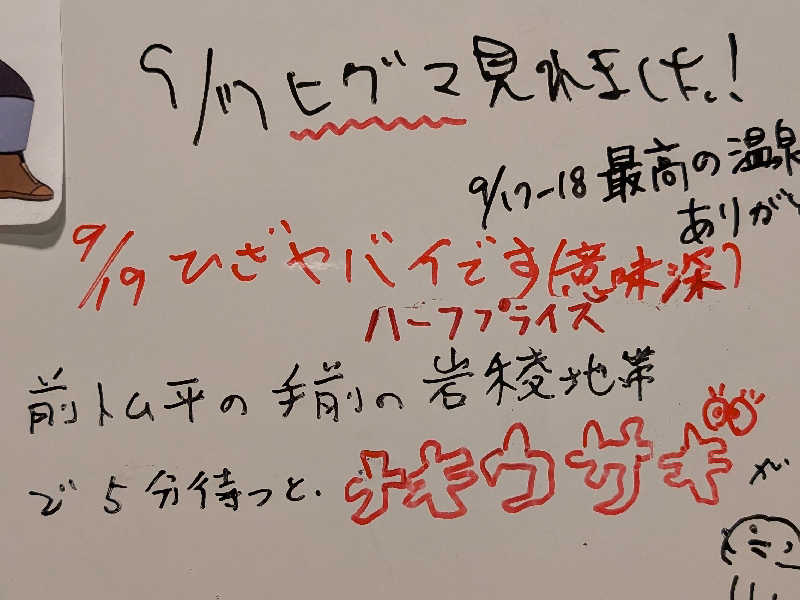 9/17 ヒグマ見れました!
9/17-18 最高の温泉
ありがと
9/19 ひざヤバイです(意味深)
ハーフプライズ
前トム平の手前の岩稜地帯
で5分待つと、
ナキウサギが